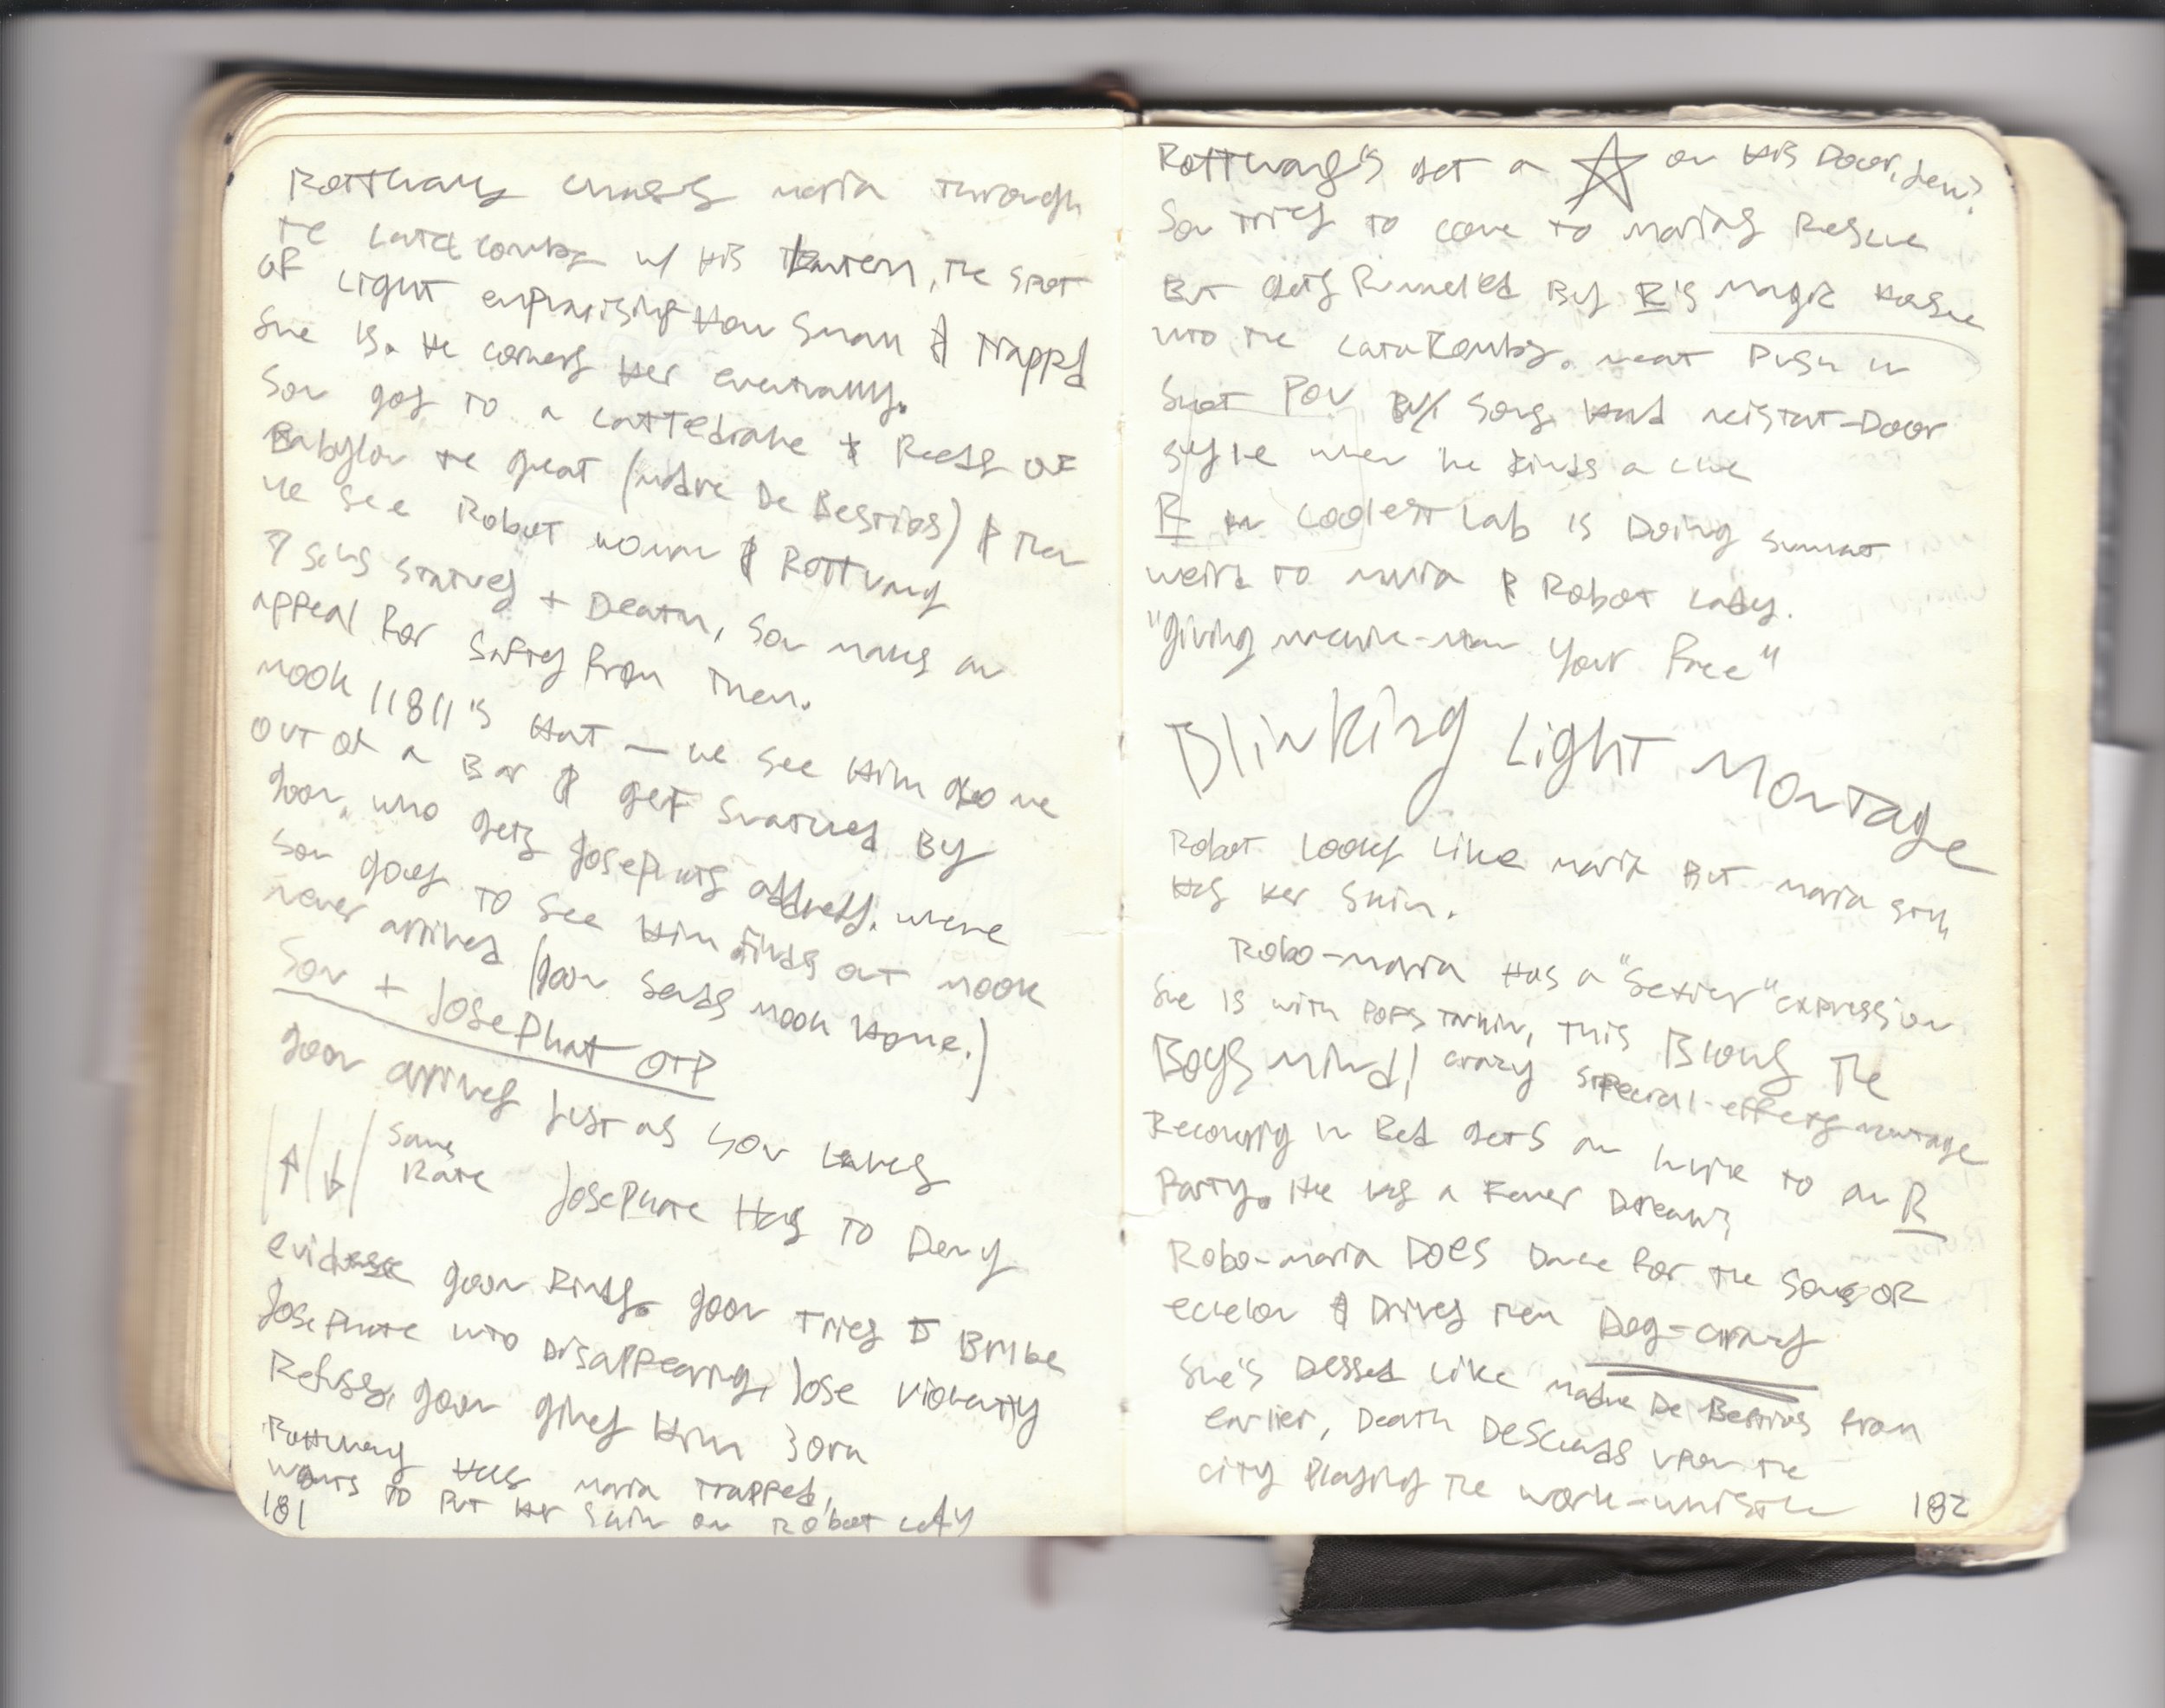 Rottwang chases maria through
the catacombs w/ his lantern, the spot
of light emphasising how small & trapped
she is. He corners her eventually.
Son goes to a cattedrahe & Reeds of
Babylon the great (madre De Bestias) & then
we see Robot woman & Rottwang
7 sins statues + Death, Son makes an
appeal for safty from them.
nook 11811's hat — we see him come
out of a Bar & get snatched By
goon, who gets Josephats address. where
Son goes to see him finds out nook
never arrived (goon sends nook home.)
Son + Josephat OTP
goon arrives just as son leaves
↑ ↓ Same
Rate Josephate Has to Deny
evidence goon finds. goon tries to Bribe
Josephate into Disappearing, Jose violently
Refuses, goon gives him 3 hrs
Rottwang has maria trapped,
wants to put her skin on Robot lady
181
Rottwang's got a ☆ on his Door, Jew?
Son tries to come to marias Rescue
But gets funnel'ed By R's magic house
into the catacombs. neat push in
shot POV By sons hand
style when he finds a clue
R in coolest Lab is Doing summat
weird to maria & Robot Lady.
"giving machine-man your face"
Blinking Light Montage
Robot looks like maria But maria still
Has her skin.
Robo-maria Has a "Sexier" expression
She is with Pops, this Blows The
Boys mind! crazy special-effects montage
Recouping in Bed gets an invite to an R
Party. He has a Fever Dream?
Robo-maria DOES Dance for the sons of
echelon & Drives them Dog-crazy
She's Dessed like madre De Bestias from
earlier, Death Descends upon the
city playing the work-whistle
182